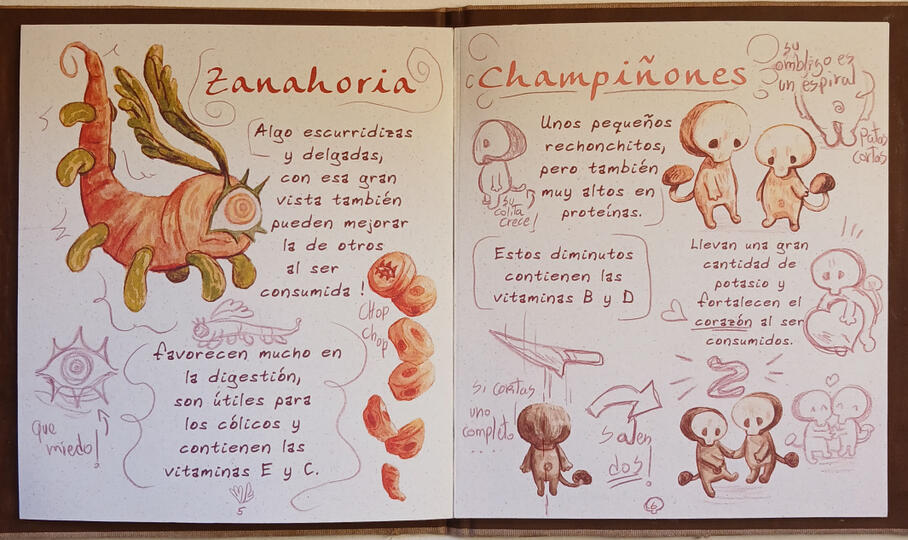 Zanahoria
Algo escurridizas
y delgadas,
con esa gran
vista también
pueden mejorar
la de otros
al ser
consumida !
CHOP
chop
que
miedo!
favorecen mucho en
la digestión,
son útiles para
los cólicos y
contienen las
vitaminas E y C.
5
Champiñones
su
ombligo es
un éspiral
patas
cortas
Unos pequeños
rechonchitos,
pero también
muy altos en
proteínas.
su
colita
crece!
Estos diminutos
contienen las
vitaminas B y D
Llevan una gran
cantidad de
potasio y
fortalecen el
corazón al ser
consumidos.
si cortas
uno
completo
...
salen
dos!
2
6